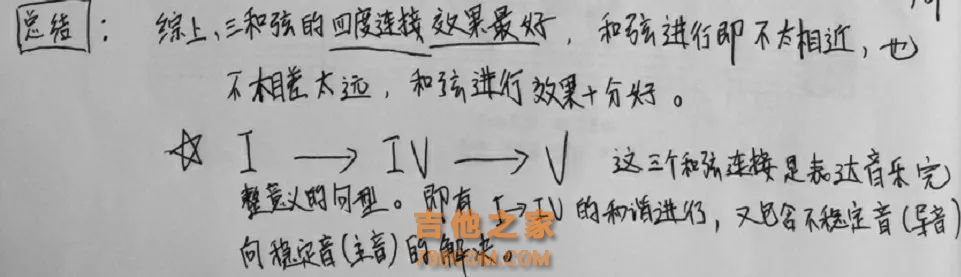 总结：综上,三和弦的四度连接效果最好，和弦进行即不太相近，也
不相差太远，和弦进行效果十分好。
☆ I → IV → V 这三个和弦连接是表达音乐完
整意义的句型。即有 I→IV 的和谐进行，又包含不稳定音(导音)
向稳定音(主音)的解决。
吉他之家
798COM.COM